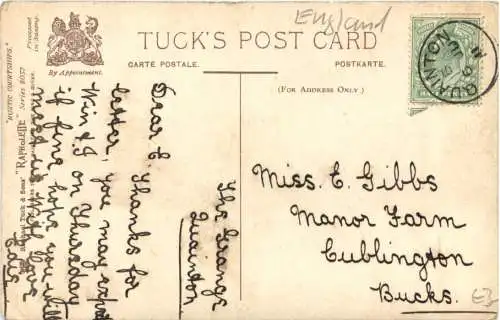 England
TUCK'S POST CARD
CARTE POSTALE.
POSTKARTE.
(FOR ADDRESS ONLY.)
By Appointment.
"RUSTIC COURTSHIPS." Series 8057
"RAPHOLETTE"
Tuck & Sons'
QUAINTON
The Grange
Quainton
Dear E. Thanks for
letter, you may expect
Win & I on Thursday
if fine, hope you will
meet us with love
Miss. E. Gibbs
Manor Farm
Cublington
Bucks.
£3